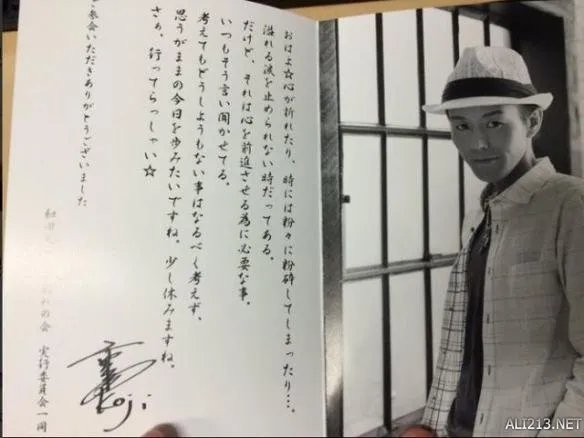 おはよ☆心が折れたり、時には粉々に粉砕してしまったり…。
溢れる涙を止められない時だってある。
だけど、それは心を前進させる為に必要な事。
いつもそう言い聞かせてる。
考えてもどうしようもない事はなるべく考えず、
思うがままの今日を歩みたいですね。少し休みますね。
さぁ、行ってらっしゃい☆
ご参会いただきありがとうございました
の会 実行委員会一同
oji
ALI213.NET